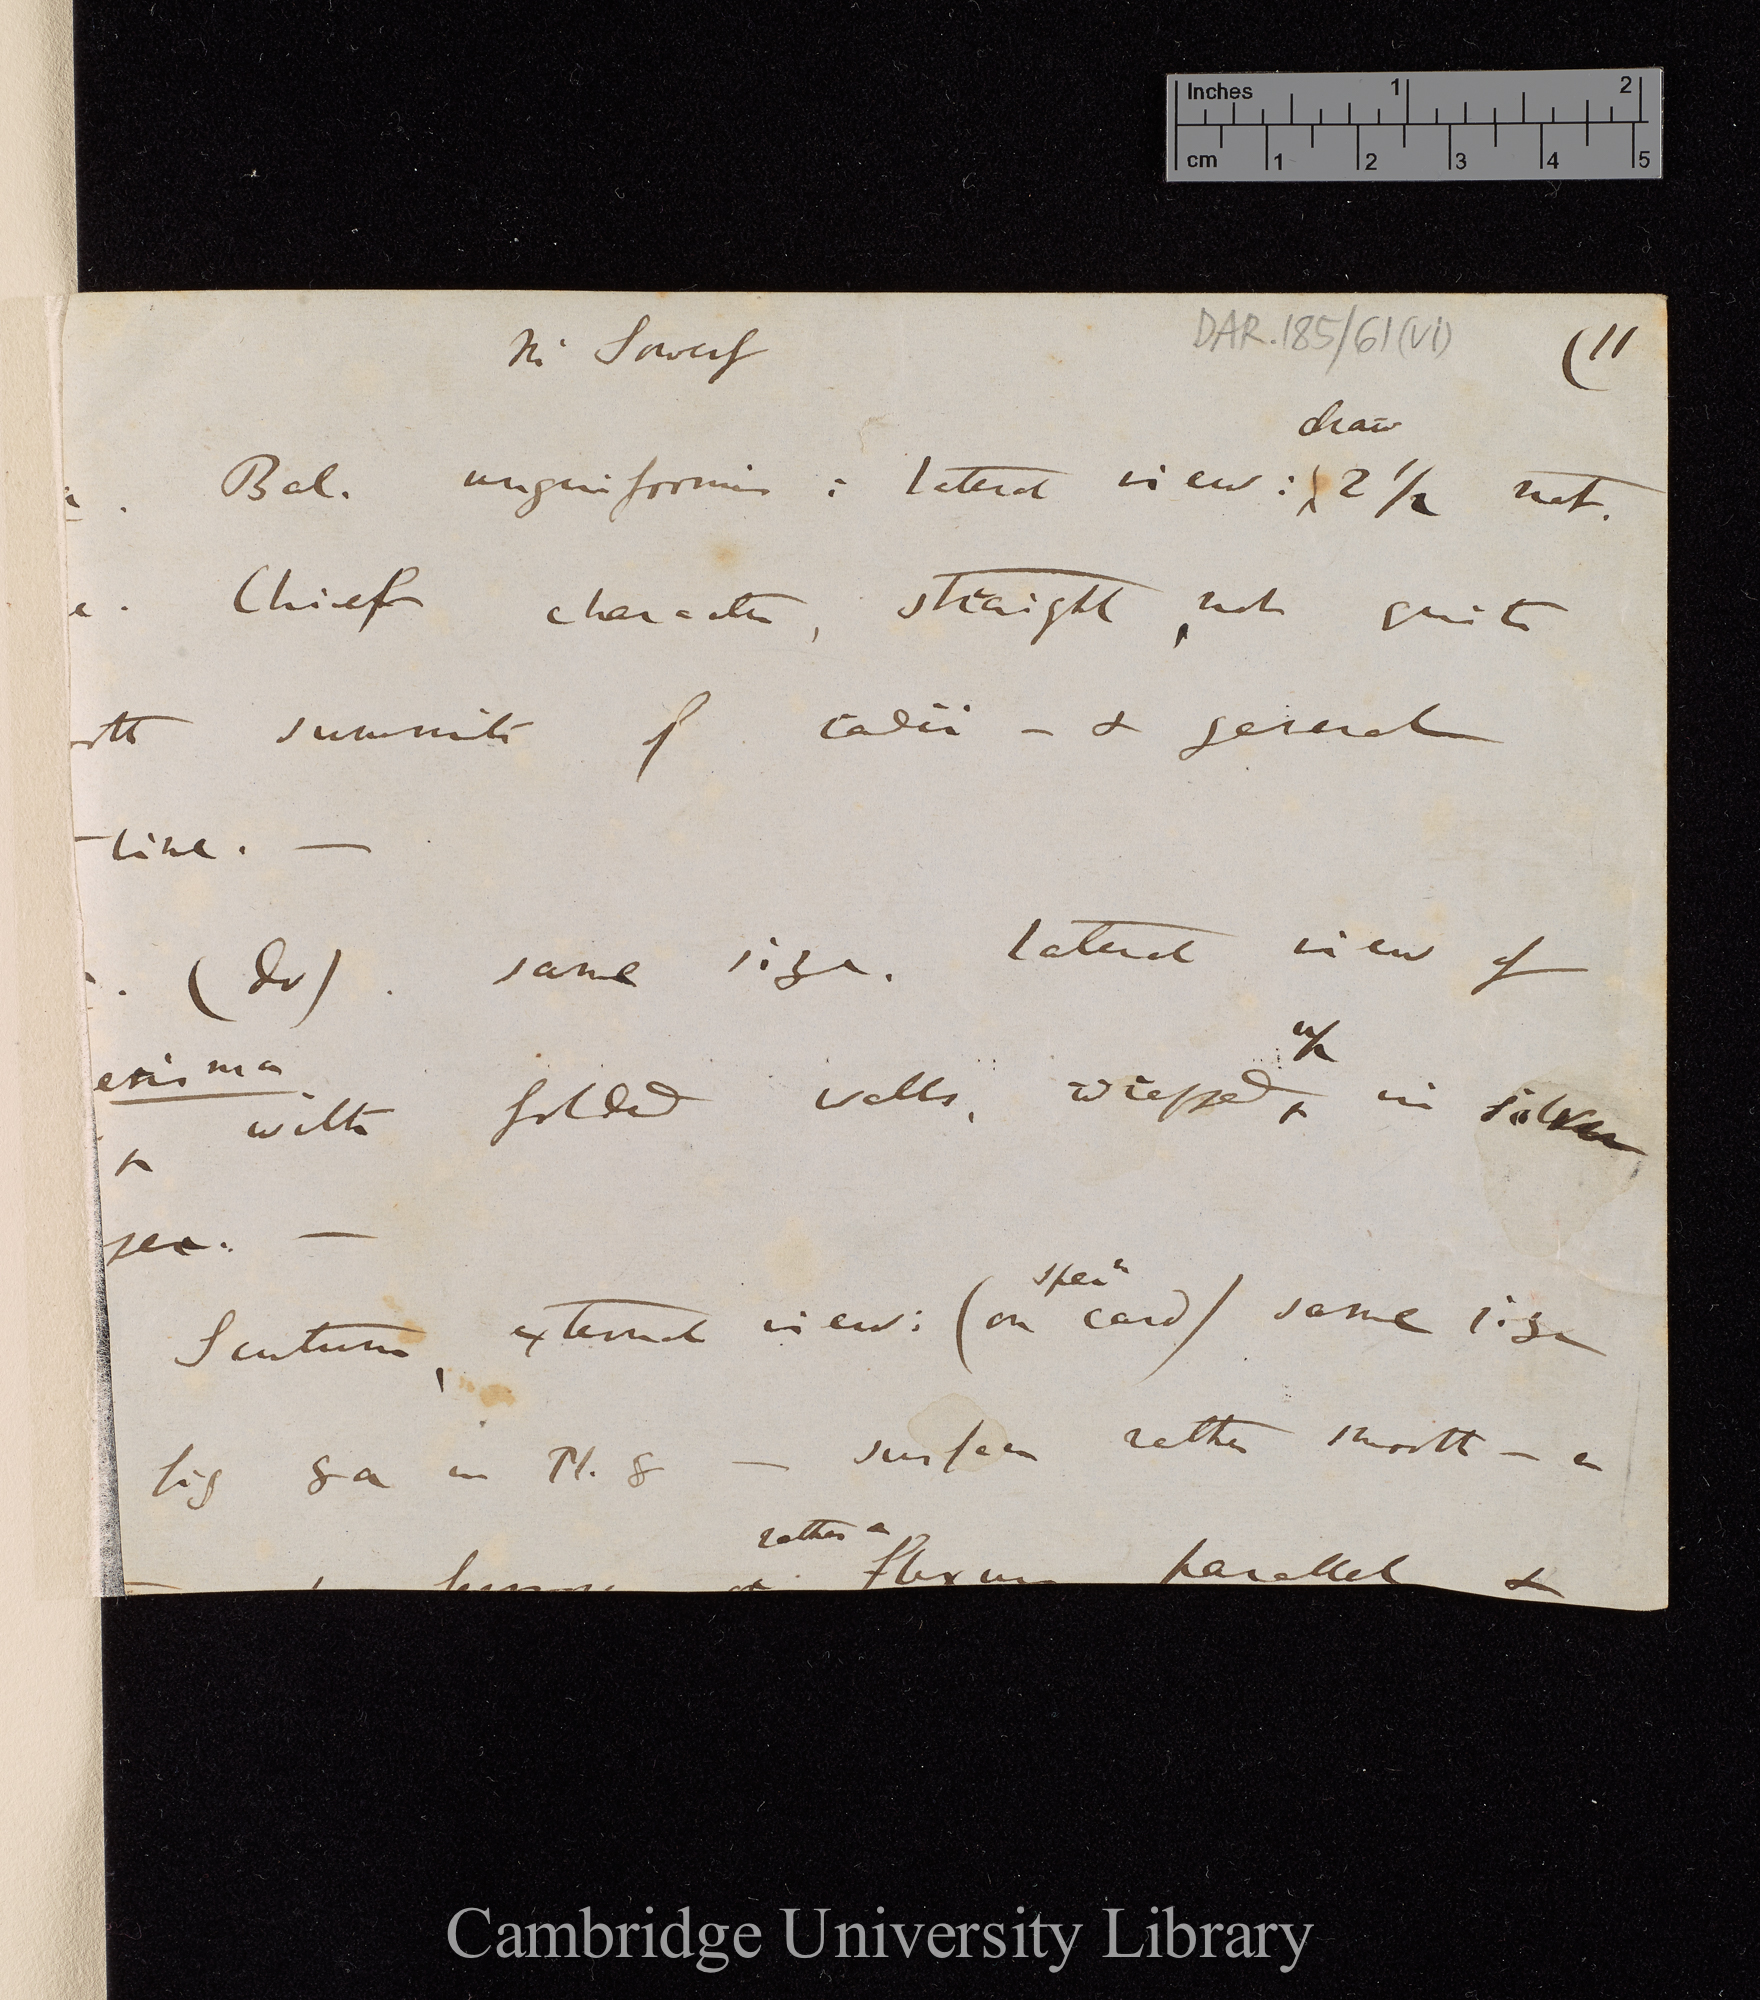 Inches 1 2
cm 1 2 3 4 5
DAR.185/61(VI)
Mr Sowerby (11
draw
Bal. unguiformis : lateral view : 2 1/2 nat.
Chief character, straight, not quite
summits of radii — & general
line. —
(do) . same size. lateral view of
up
erisma with folded walls, wrapped in silver
per. —
specn
Scutum, external view : (on card) same size
fig 8 a in Pl. 8 — surface rather smooth — a
rather a
flexure parallel &
Cambridge University Library